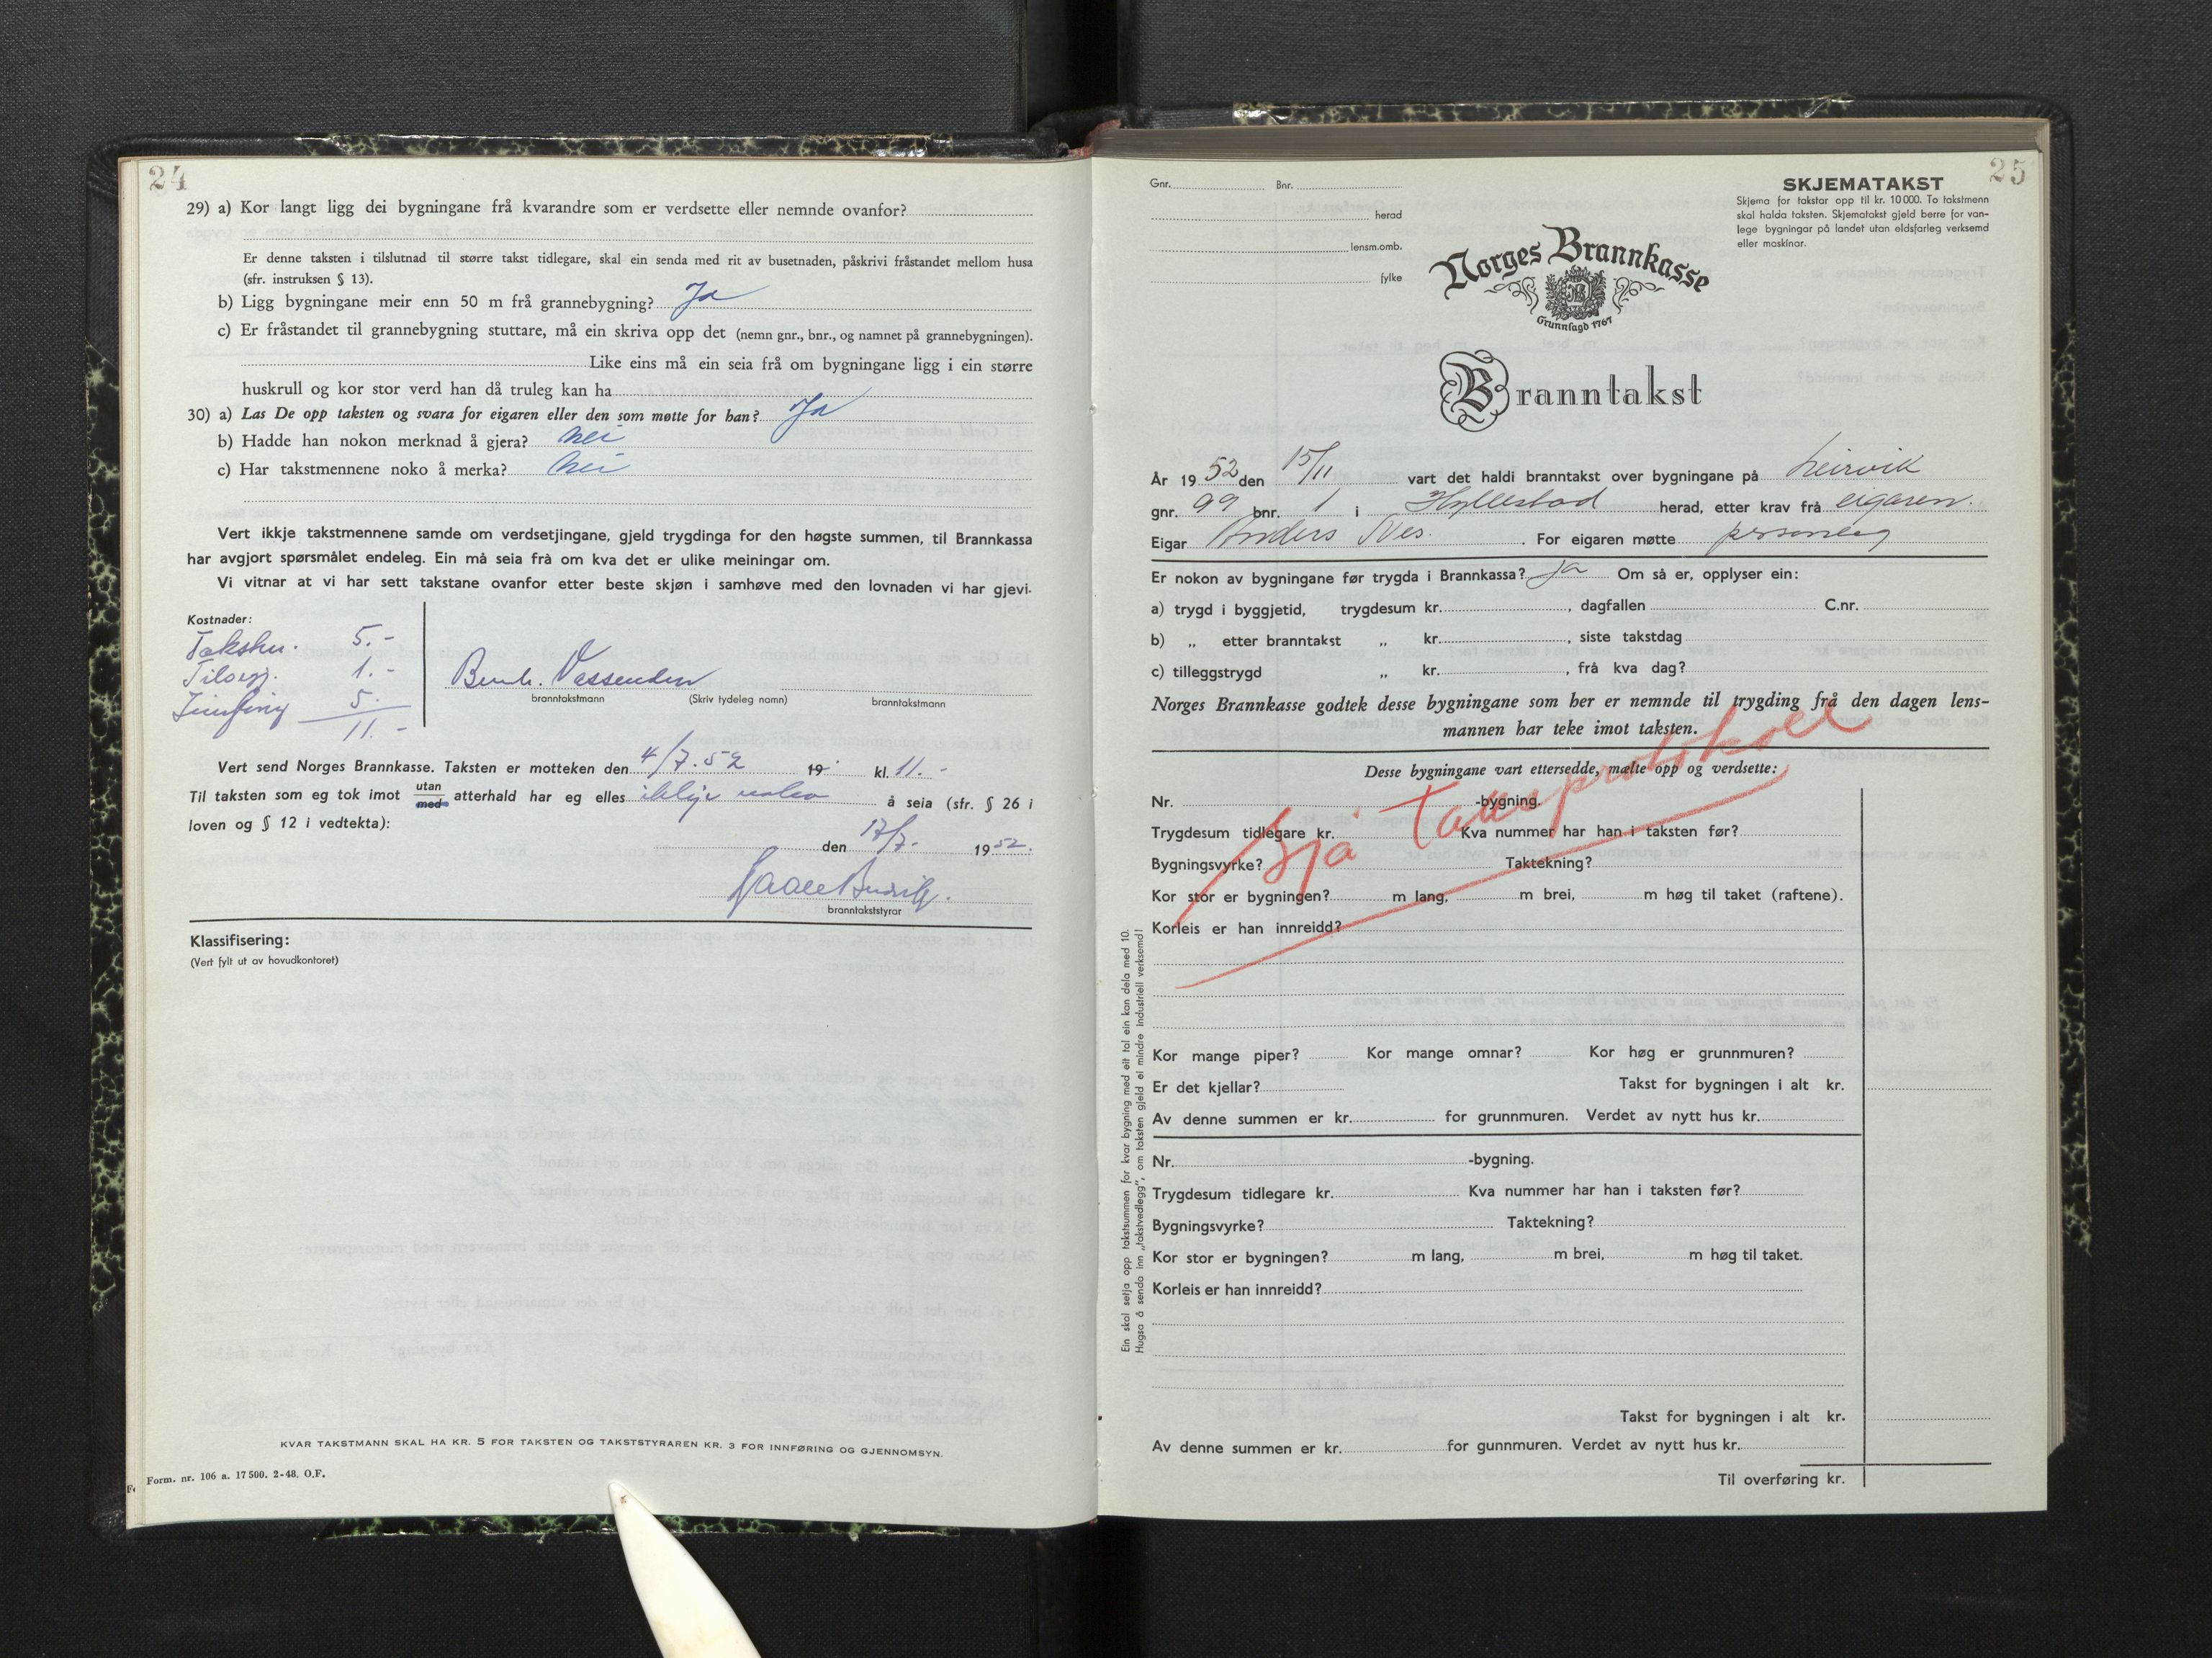 24
29) a) Kor langt ligg dei bygningane frå kvarandre som er verdsette eller nemnde ovanfor?
Er denne taksten i tilslutnad til større takst tidlegare, skal ein senda med rit av busetnaden, påskrivi fråstandet mellom husa
(sfr. instruksen § 13).
b) Ligg bygningane meir enn 50 m frå grannebygning? Ja
c) Er fråstandet til grannebygning stuttare, må ein skriva opp det (nemn gnr., bnr., og namnet på grannebygningen).
Like eins må ein seia frå om bygningane ligg i ein større
huskrull og kor stor verd han då truleg kan ha
30) a) Las De opp taksten og svara for eigaren eller den som møtte for han? Ja
b) Hadde han nokon merknad å gjera? nei
c) Har takstmennene noko å merka? nei
Vert ikkje takstmennene samde om verdsetjingane, gjeld trygdinga for den høgste summen, til Brannkassa
har avgjort spørsmålet endeleg. Ein må seia frå om kva det er ulike meiningar om.
Vi vitnar at vi har sett takstane ovanfor etter beste skjøn i samhøve med den lovnaden vi har gjevi.
Kostnader:
5.-
1.-
5.
11.-
Vassenden
branntakstmann (Skriv tydeleg namn) branntakstmann
Vert send Norges Brannkasse. Taksten er motteken den 4/7.52 19 kl. 11.-
Til taksten som eg tok imot utan med atterhald har eg elles ikkje å seia (sfr. § 26 i
loven og § 12 i vedtekta):
den 17/7. 1952.
branntakststyrar
Klassifisering:
(Vert fylt ut av hovudkontoret)
KVAR TAKSTMANN SKAL HA KR. 5 FOR TAKSTEN OG TAKSTSTYRAREN KR. 3 FOR INNFØRING OG GJENNOMSYN.
Form. nr. 106 a. 17500. 2-48. O.F.
25
Gnr. Bnr.
herad
lensm.omb.
fylke
SKJEMATAKST
Skjema for takstar opp til kr. 10 000. To takstmenn
skal halda taksten. Skjematakst gjeld berre for van-
lege bygningar på landet utan eldsfarleg verksemd
eller maskinar.
Norges Brannkasse
Grunnlagd 1767
Branntakst
År 1952 den 15/11 vart det haldi branntakst over bygningane på Leirvik
gnr. 99 bnr. 1 i Hyllestad herad, etter krav frå eigaren.
Eigar Anders . For eigaren møtte personleg
Er nokon av bygningane før trygda i Brannkassa? ja Om så er, opplyser ein:
a) trygd i byggjetid, trygdesum kr. , dagfallen C.nr.
b) „ etter branntakst „ kr. , siste takstdag
c) tilleggstrygd „ kr. , frå kva dag?
Norges Brannkasse godtek desse bygningane som her er nemnde til trygding frå den dagen lens-
mannen har teke imot taksten.
Desse bygningane vart ettersedde, mælte opp og verdsette:
Sjå Taksprotokoll
Nr. -bygning.
Trygdesum tidlegare kr. Kva nummer har han i taksten før?
Bygningsvyrke? Taktekning?
Kor stor er bygningen? m lang, m brei, m høg til taket (raftene).
Korleis er han innreidd?
Kor mange piper? Kor mange omnar? Kor høg er grunnmuren?
Er det kjellar? Takst for bygningen i alt kr.
Av denne summen er kr. for grunnmuren. Verdet av nytt hus kr.
Nr. -bygning.
Trygdesum tidlegare kr. Kva nummer har han i taksten før?
Bygningsvyrke? Taktekning?
Kor stor er bygningen? m lang, m brei, m høg til taket.
Korleis er han innreidd?
Takst for bygningen i alt kr.
Av denne summen er kr. for gunnmuren. Verdet av nytt hus kr.
Til overføring kr.
Ein skal setja opp takstsummen for kvar bygning med eit tal ein kan dela med 10.
Hugsa å senda inn „takstvedlegg", om taksten gjeld ei mindre industriell verksemd!